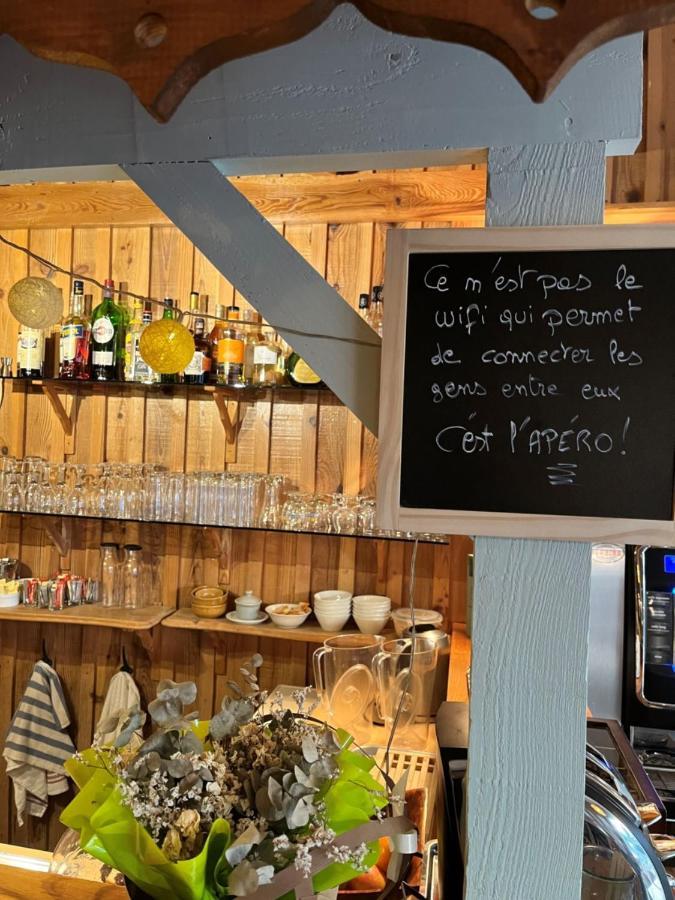 Ce m'est pas le
wifi qui permet
de connecter les
gens entre eux
C'est l'APÉRO !